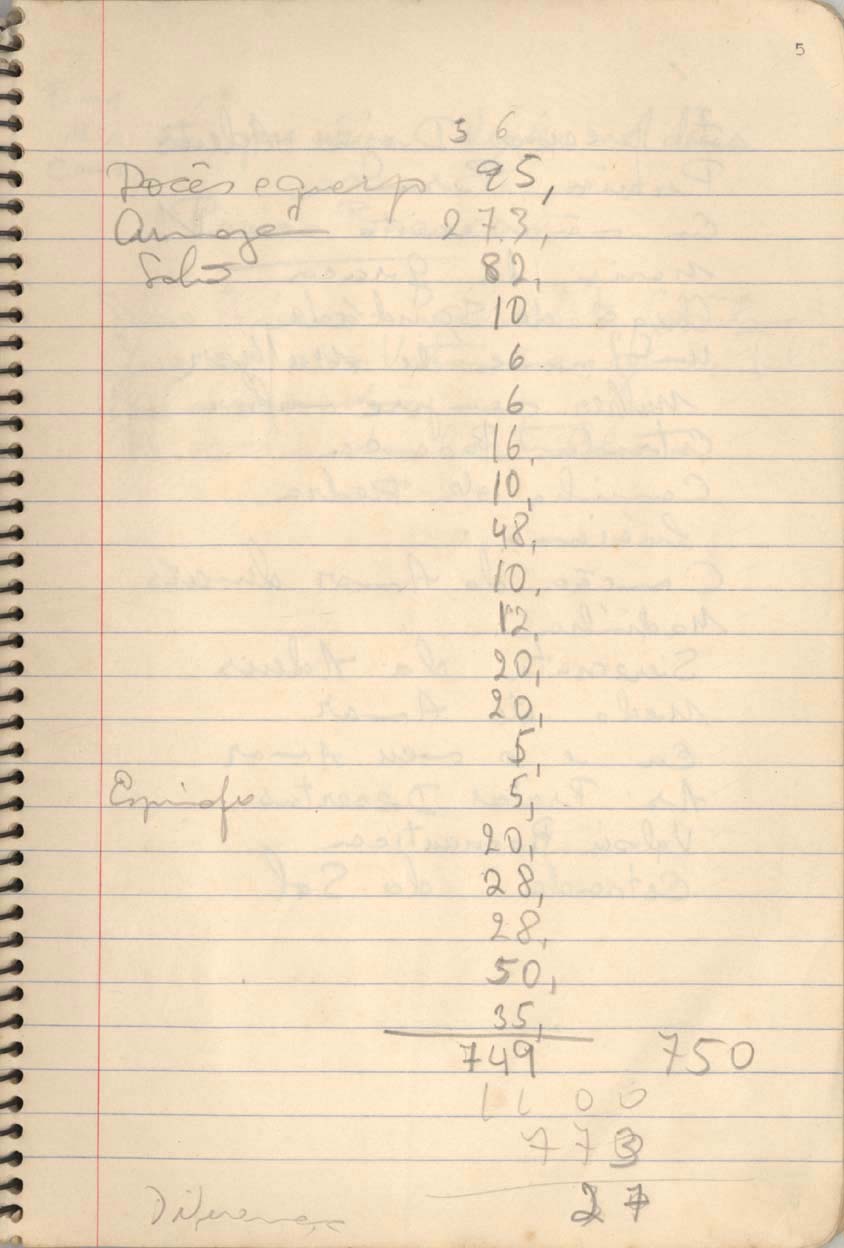 5
5 6
Doces e queijo 95,
Armazem 273,
Sabão 82,
10
6
6
16,
10,
48,
10,
12,
20,
20,
5,
Espinafre 5,
20,
28,
28,
50,
35,
749 750
1100
773
Diferença 27